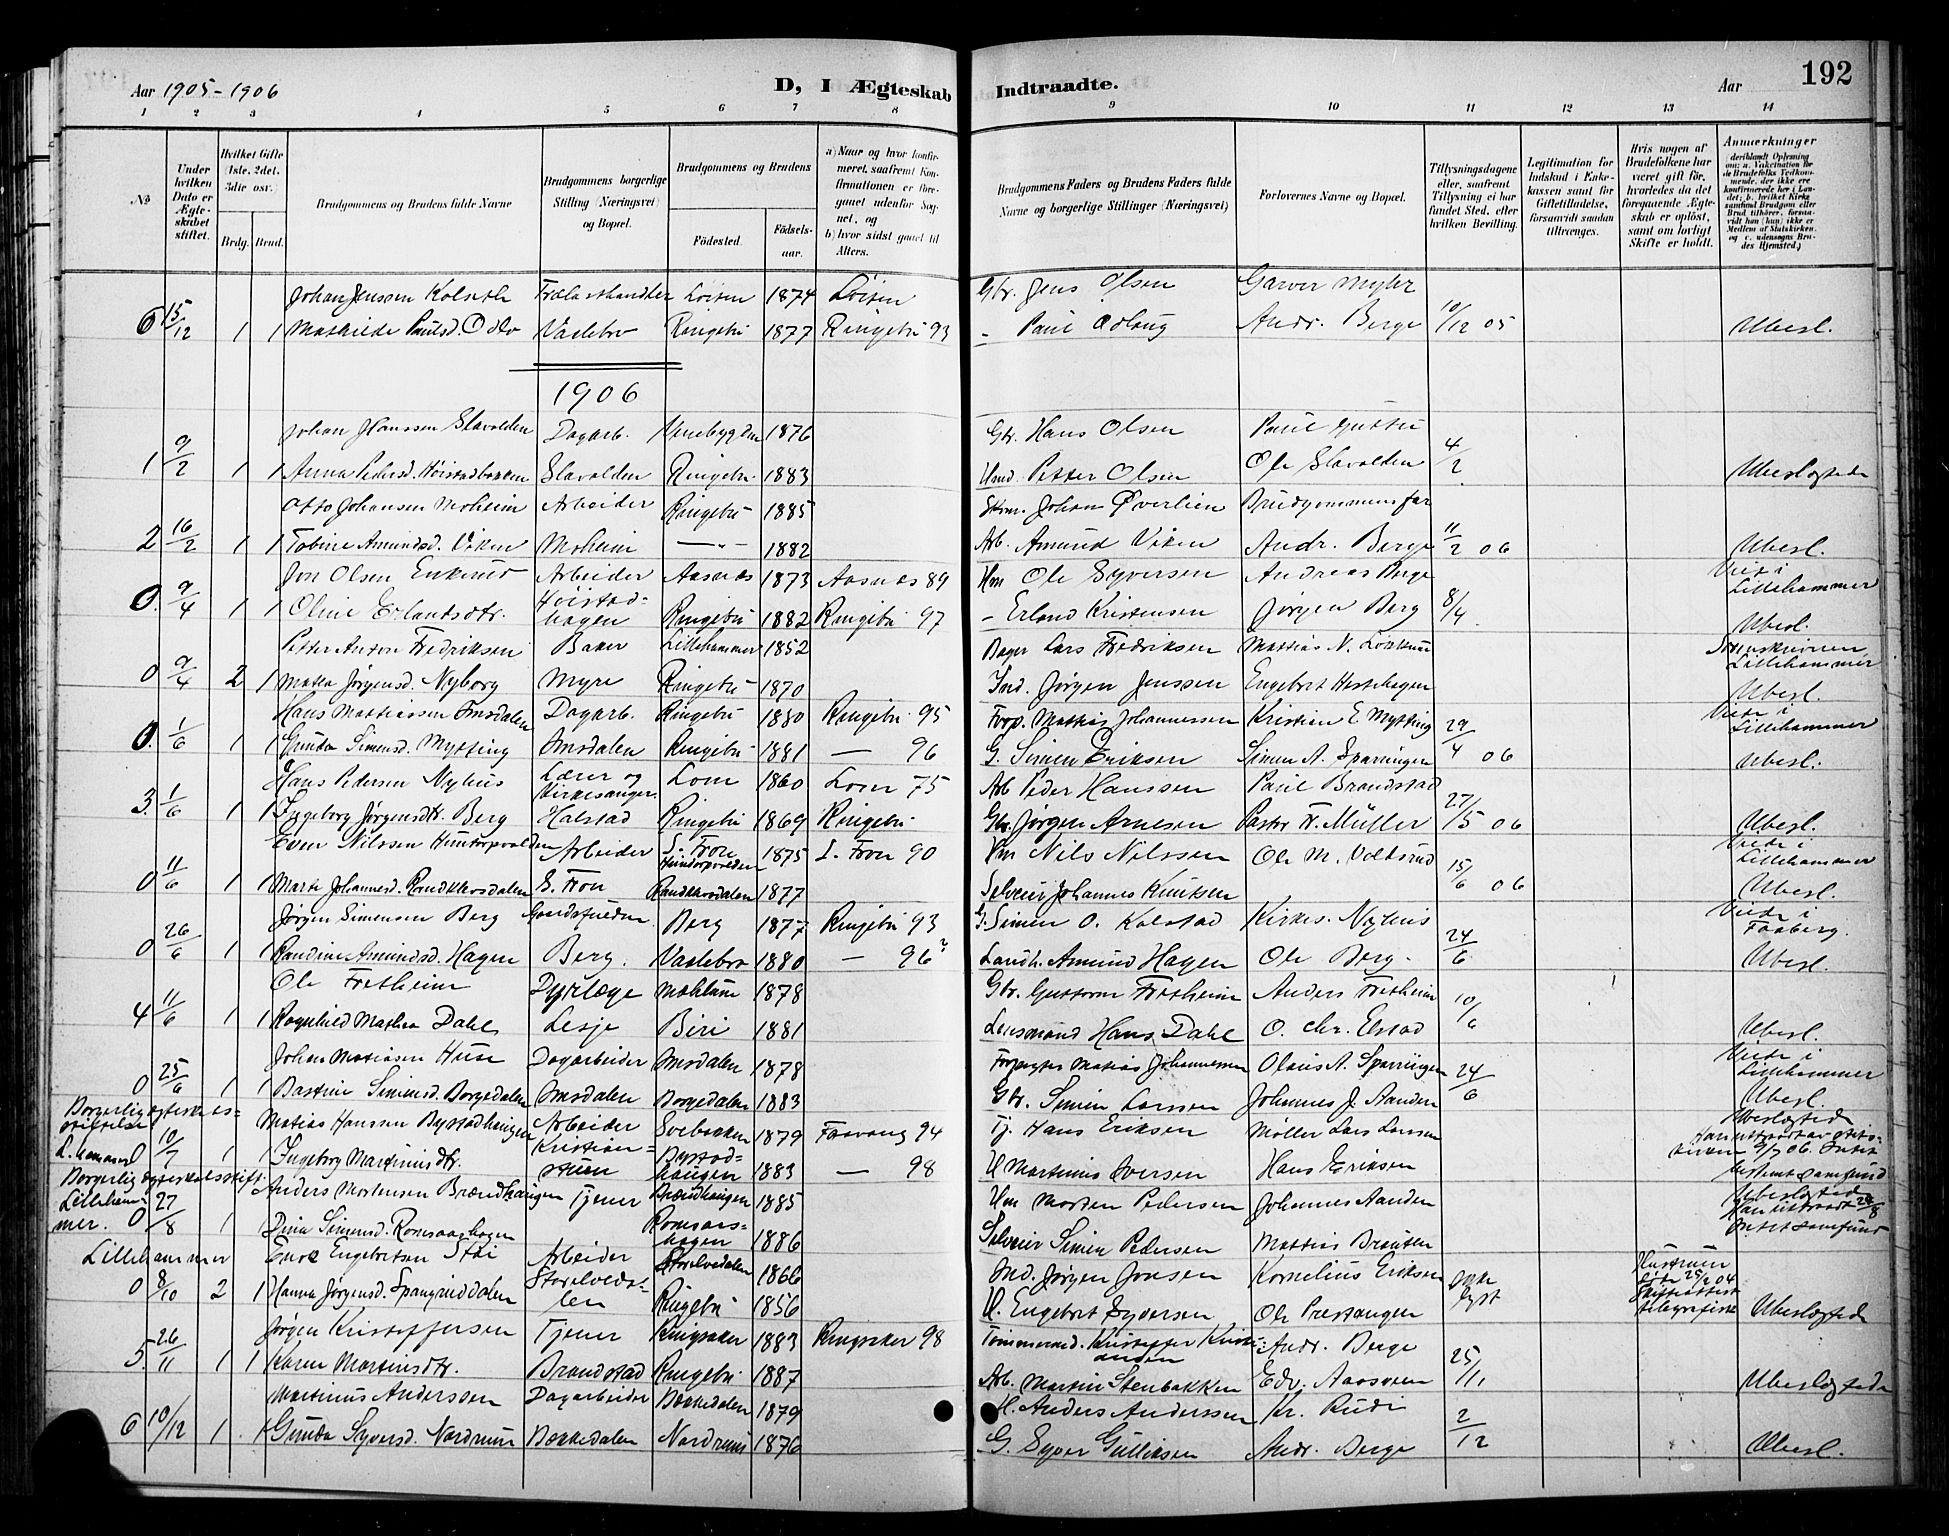 Aar 1905-1906
D, I Ægteskab Indtraadte.
Aar
192
1 2 3 4 5 6 7 8 9 10 11 12 13 14
№
Under hvilken Dato er Ægteskabet stiftet.
Hvilket Gifte (1ste, 2det, 3die osv.)
Brdg. Brud.
Brudgommens og Brudens fulde Navne
Brudgommens borgerlige Stilling (Næringsvei) og Bopæl.
Brudgommens og Brudens
Födested. Födselsaar.
a) Naar og hvor konfirmeret, saafremt Konfirmationen er foregaaet udenfor Sognet, og b) hvor sidst gaaet til Alters.
Brudgommens Faders og Brudens Faders fulde Navne og borgerlige Stillinger (Næringsvei)
Forlovernes Navne og Bopæl.
Tillysningsdagene eller, saafremt Tillysning ei har fundet Sted, efter hvilken Bevilling.
Legitimation for Indskud i Enkekassen samt for Giftetilladelse, forsaavidt saadan tiltrænges.
Hvis nogen af Brudefolkene har været gift før, hvorledes da det foregaaende Ægteskab er opløst, samt om lovligt Skifte er holdt.
Anmærkninger
Johan Jenssen Kolseth Trælasthandler Löiten 1874 Löiten Gbr. Jens Olsen Garver Myhr
6 15/12 1 1 Mathilde Paulsd. Odlo Vaalebro Ringebu 1877 Ringebu 93 - Paul Odlaug Andr. Berge 10/12 05 Ubesl.
1906
Johan Hanssen Slavolden Dagarb. Venebygden 1876 Gbr. Hans Olsen Paul
1 9/2 1 1 Anna Pedersd. Höistadbakken Slavolden Ringebu 1883 Petter Olsen Ole Slavolden 4/2 Ubeslægtede
Otto Johansen Moheim Arbeider Ringebu 1885 Johan Øverlien Brudgommens far
2 16/2 1 1 Tobine Amundsd. Viken Moheim —"— 1882 Arb. Amund Viken Andr. Berge 11/2 06 Ubesl.
Jon Olsen Enkerud Arbeider Aasnes 1873 Aasnes 89 Hm Ole Syversen Andreas Berge Viede i Lillehammer
0. 9/4 1 1 Oline Erlandsdtr. Höistadhagen Ringebu 1882 Ringebu 97 - Erland Kristensen Jørgen Berg 8/4. Ubesl.
Petter Anton Fredriksen Baker Lillehammer 1852 Bager Lars Fredriksen Mattias N. Sorenskriveren Lillehammer
0 9/4 2 1 Mathea Jørgensd. Nyborg Myre Ringebu 1870 Ind. Jørgen Jenssen Engebret Hestehagen Ubesl.
Hans Mattiassen Imsdalen Dagarb. Ringebu 1880 Ringebu 95 Forp. Mattias Johannessen Kristian E. Mytting Viede i Lillehammer
0. 1/6 1 1 Gunda Simensd. Mytting Imsdalen Ringebu 1881 — 96 G. Simen Eriksen Simen A. Sparningen 29/4 06 Ubesl.
Hans Pedersen Nyhus Lærer og Kirkesanger Lom 1860 Lom 75 Arb Peder Hanssen Paul Brandstad
3. 1/6 1 1 Ingeborg Jørgensdtr. Berg Halstad Ringebu 1869 Ringebu Gbr. Jørgen Arnesen Pastor Fr. Müller 27/5 06 Ubesl.
Even Nilssen Hundorpvolden Arbeider S. Fron Hundorpvolden 1875 S. Fron 90 Nils Nilssen Ole M. Voldsrud Viede i Lillehammer
0 11/6 1 1 Marte Johannesd. Randklevsdalen S. Fron Randklevsdalen 1877 Selveier Johannes Knutsen 15/6 06 Ubesl.
Jørgen Simensen Berg Berg 1877 Ringebu 93 G. Simen O. Kolstad Kirkes. Nyhus Viede i Faaberg.
0 26/6 1 1 Randine Amundsd. Hagen Berg. Vaalebro 1880 — 96? Landh. Amund Hagen Ole Berg. 24/6 Ubesl.
Ole Fretheim Dyrlæge 1878 Gbr. Guttorm Fretheim Anders Fretheim
4 11/6 1 1 Ragnhild Mathea Dahl Lesje Biri 1881 Lensmand Hans Dahl O. Chr. Elstad 10/6 Ubesl.
Johan Matiasen Huse Dagarbeider Imsdalen 1878 Forpagter Matias Johannessen Olaus A. Sparningen Viede i Lillehammer
0 25/6 1 1 Bastine Simensd. Borgedalen Imsdalen Borgedalen 1883 Gbr. Simen Larssen Johannes J. Aanden 24/6 Ubesl.
Borgerlig ægteskabsstiftelse Matias Hanssen Bystadhaugen Arbeider Svebakken 1879 Faavang 94 Tj. Hans Eriksen Møller Lars Larssen Ubeslægtede
10/7 1 1 Ingeborg Martinusdtr. Kristianstuen Bystadhaugen 1883 — 98 Martinus Iversen Hans Eriksen
Borgerlig ægteskabsstift. Anders Mortensen Brændhaugen Tjener Brændhaugen 1885 Morten Pedersen Johannes Aanden Ubeslægtede
Lillehammer. 0 27/8 1 Dina Simensd. Romsaashagen Romsaashagen 1886 Selveier Simen Pedersen Mattias Braaten
Lillehammer Engebretsen Stai Arbeider Storelvedalen 1866 Ind. Jørgen Jonsen Kornelius Eriksen Ikke lyst
0 8/10 2 1 Hanna Jørgensd. Spangruddalen Storelvedalen Ringebu 1856 Engebret Syversen Ole Prestangen Ubeslægtede
Jørgen Kristoffersen Tjener Ringsaker 1883 Ringsaker 98 Tømmermd. Kristoffer Kristiansen Andr. Berge
5. 26/11 1 1 Karen Martinsdtr. Brandstad Ringebu 1887 Arb. Martin Stenbakken Edv. Aasveen 25/11 Ubeslægtede
Martinus Anderssen Dagarbeider Bækkedalen 1879 H. Anders Anderssen Kr. Rudi
6 10/12 1. 1 Gunda Syversd. Nordrum Bækkedalen Nordrum 1876 G. Syver Gulliksen Andr. Berge 2/12 Ubesl.